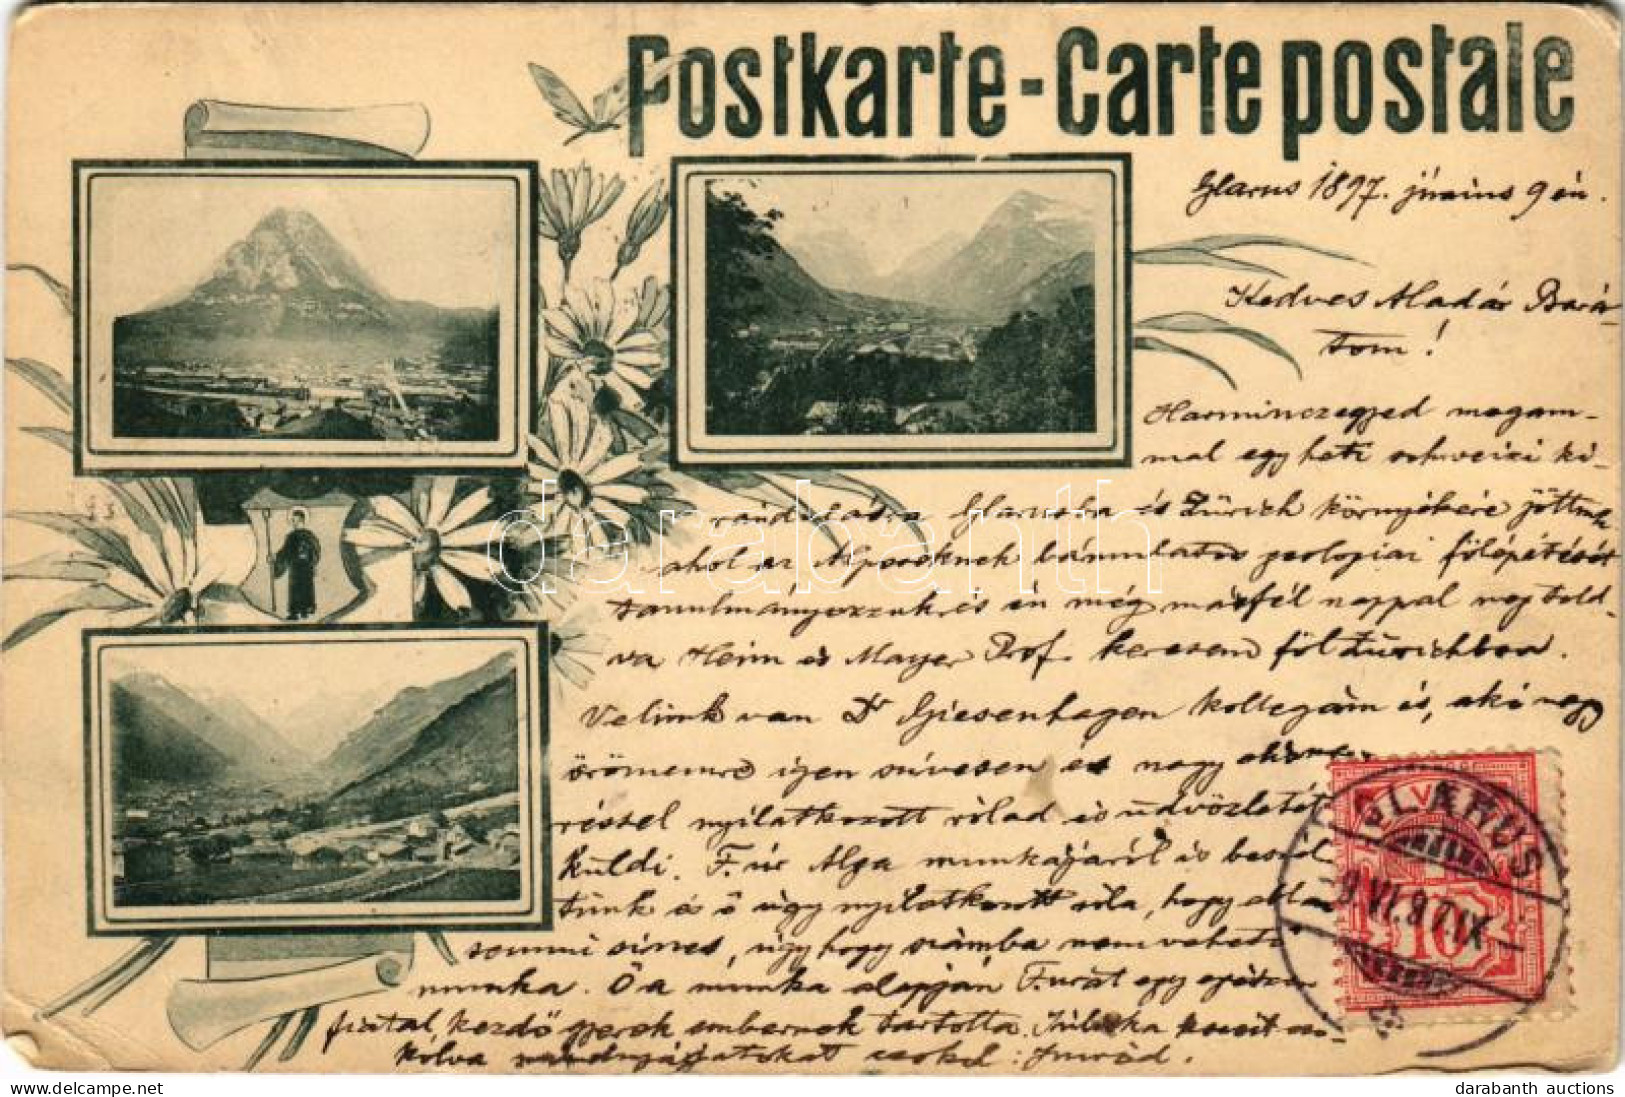 Postkarte - Carte postale
Glarus 1897. június 9 én.
Kedves Aladár Bará-
tom!
Harminczegyed magam-
mal egy heti schweizi ki-
rándulásra Glarusba és Zürich környékére jöttünk
ahol az Alpeseknek bámulatos geologiai fölépítését
tanulmányozzuk és én még másfél nappal megtold-
va Heim és Mayer Prof. keresem föl Zürichben.
Velünk van Dr Giesenhagen kollegám is, aki nagy
örömemre igen szivesen és nagy elisme-
réssel nyilatkozott rólad és üdvözletét
küldi. F. úr Alga munkájáról is beszél-
tünk és ő úgy nyilatkozott róla, hogy abba
semmi sincs, úgy hogy számba nem vehető
munka. Ő a munka alapján F. urat egy egészen
fiatal, kezdő gyerek embernek tartotta. Juliska
kólva csokol:
darabanth
HELVETIA
10
GLARUS
9.VI.97.IX
darabanth auctions